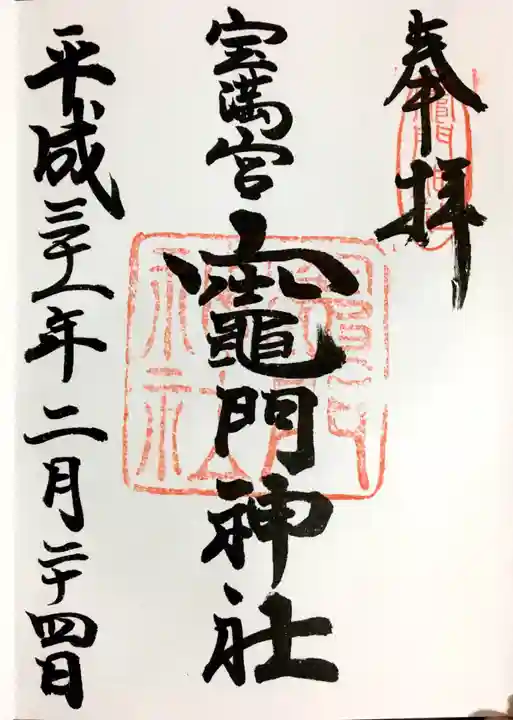 奉拝
宝満宮竈門神社
平成三十一年二月二十四日
竈門神社